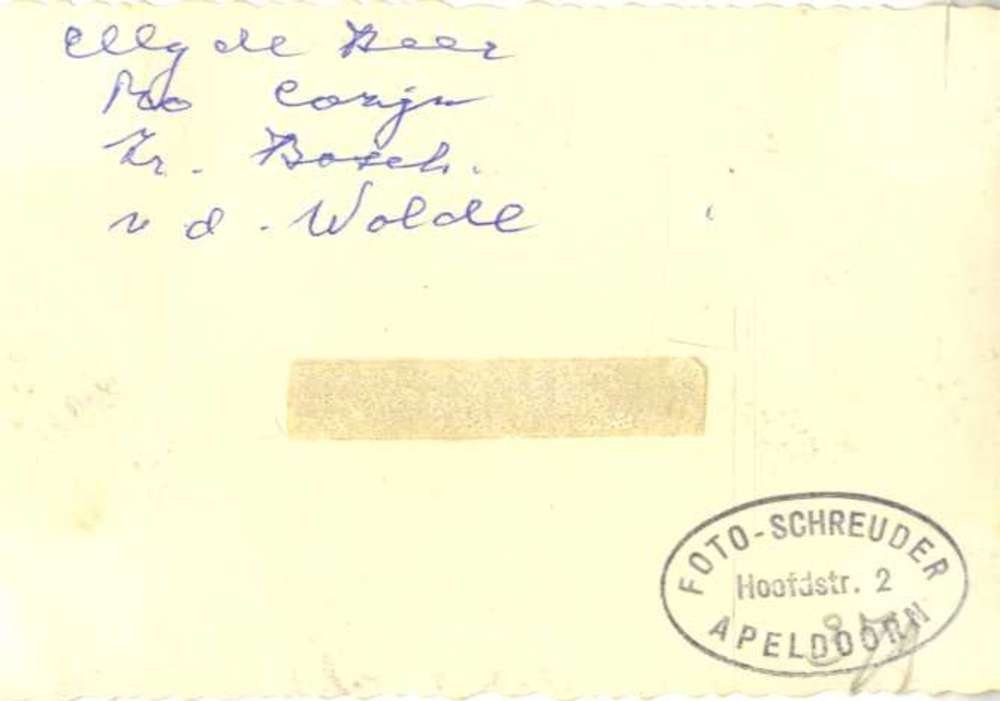 Elly de Heer
Corijn
Zr. Bosch.
v d. Wolde
FOTO-SCHREUDER
Hoofdstr. 2
APELDOORN